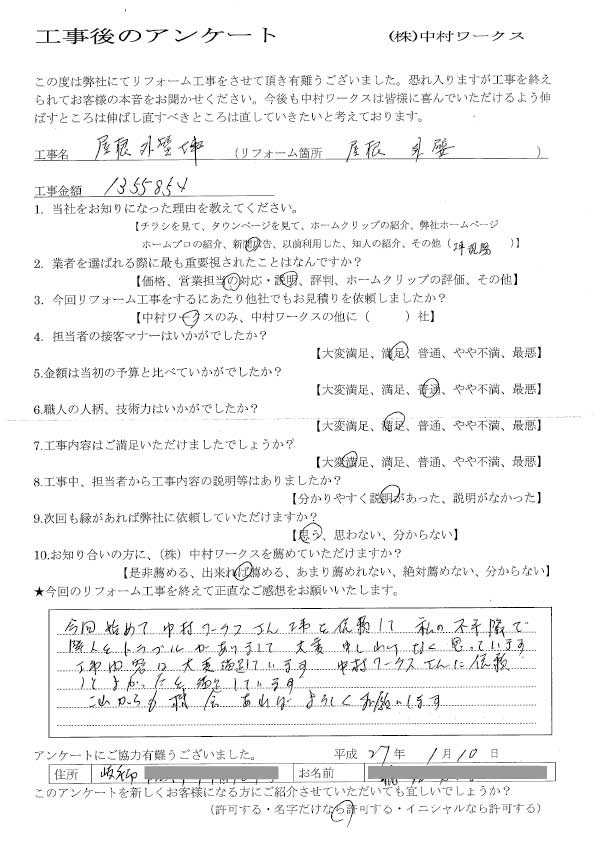 工事後のアンケート (株)中村ワークス
この度は弊社にてリフォーム工事をさせて頂き有難うございました。恐れ入りますが工事を終え
られてお客様の本音をお聞かせください。今後も中村ワークスは皆様に喜んでいただけるよう伸
ばすところは伸ばし直すべきところは直していきたいと考えております。
工事名 屋根外壁工事 (リフォーム箇所 屋根 外壁 )
工事金額 1355854
1. 当社をお知りになった理由を教えてください。
【チラシを見て、タウンページを見て、ホームクリップの紹介、弊社ホームページ
ホームプロの紹介、新聞広告、以前利用した、知人の紹介、その他( )】
2. 業者を選ばれる際に最も重要視されたことはなんですか?
【価格、営業担当の対応・説明、評判、ホームクリップの評価、その他】
3. 今回リフォーム工事をするにあたり他社でもお見積りを依頼しましたか?
【中村ワークスのみ、中村ワークスの他に( )社】
4. 担当者の接客マナーはいかがでしたか?
【大変満足、満足、普通、やや不満、最悪】
5.金額は当初の予算と比べていかがでしたか?
【大変満足、満足、普通、やや不満、最悪】
6.職人の人柄、技術力はいかがでしたか?
【大変満足、満足、普通、やや不満、最悪】
7.工事内容はご満足いただけましたでしょうか?
【大変満足、満足、普通、やや不満、最悪】
8.工事中、担当者から工事内容の説明等はありましたか?
【分かりやすく説明があった、説明がなかった】
9.次回も縁があれば弊社に依頼していただけますか?
【思う、思わない、分からない】
10.お知り合いの方に、(株)中村ワークスを薦めていただけますか?
【是非薦める、出来れば薦める、あまり薦めれない、絶対薦めない、分からない】
★今回のリフォーム工事を終えて正直なご感想をお願いいたします。
今回始めて中村ワークスさん工事を依頼して 私の不手際で
隣人とトラブルがありまして 大変申しわけなく思っています
工事内容は大変満足しています 中村ワークスさんに依頼
してよかったと満足しています
これからも機会あればよろしくお願いします
アンケートにご協力有難うございました。 平成 27 年 1月10日
住所 岐阜市 お名前
このアンケートを新しくお客様になる方にご紹介させていただいても宜しいでしょうか?
(許可する・名字だけなら許可する・イニシャルなら許可する)